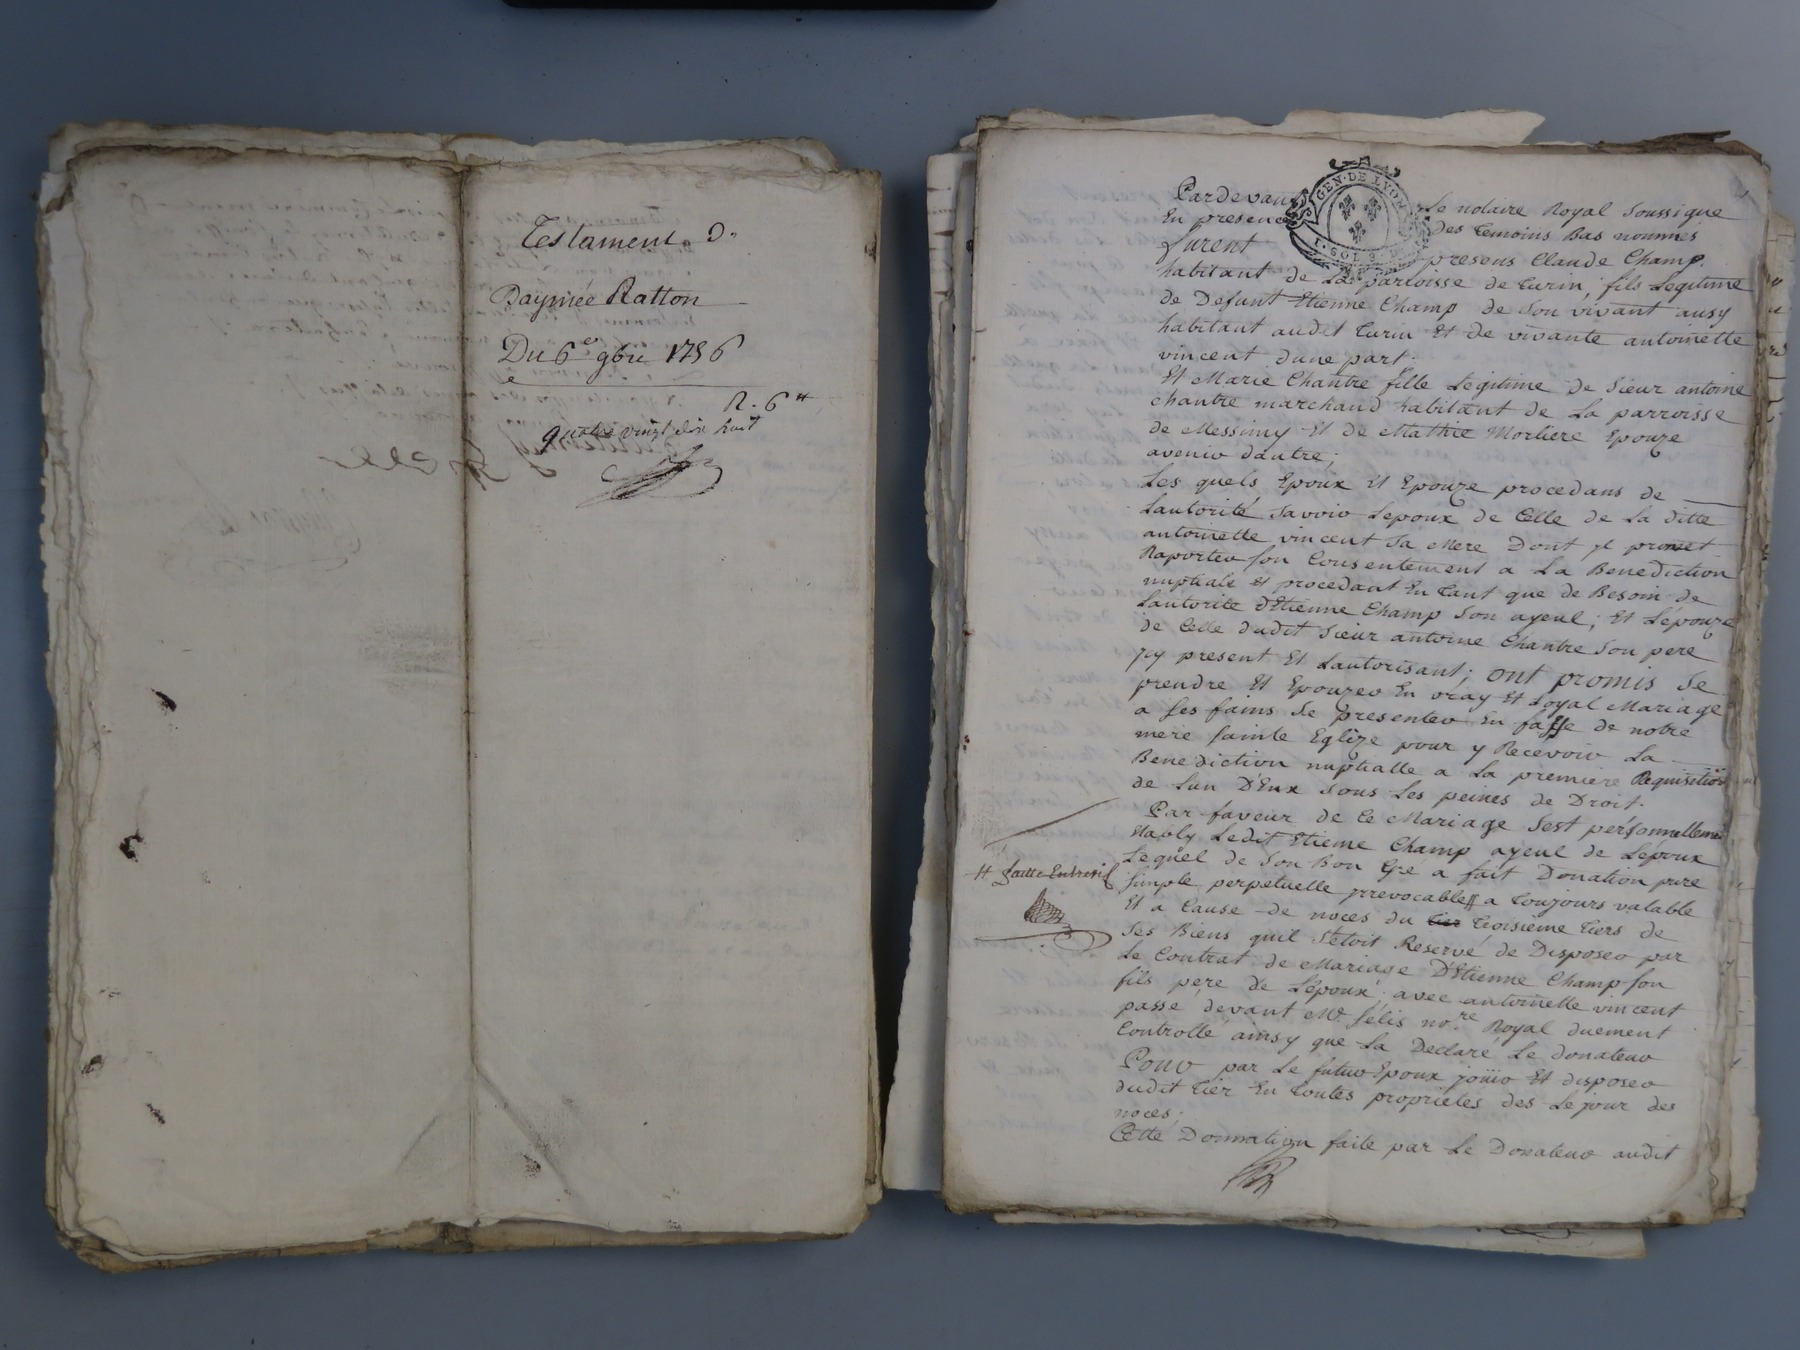 Testament D.
Daymée Ratton
Du 6e 9bre 1756
R. 6 ₶
quatre vingt dix huit
GEN. DE LYON
1. SOL 9 D.
Pardevant Le notaire Royal Soussigne
En presence des temoins Bas nommes
furent presens Claude Champ
habitant de La parroisse de turin, fils Legitime
de Defunt Etienne Champ de son vivant ausy
habitant audit turin Et de vivante antoinette
vincent dune part.
Et Marie Chantre fille Legitime de Sieur antoine
chantre marchand habitant de La parroisse
de Messimy Et de Mathie Morliere Epouze
avenir dautre;
Les quels Epoux Et Epouze procedans de
Lautorité savoir Lepoux de Celle de La ditte
antoinette vincent Sa Mere Dont yl promet
Raporter son Consentement a La Benediction
nuptiale Et procedant En tant que de Besoin de
Lautorite dEtienne Champ son ayeul; Et Lépouze
de Celle dudit sieur antoine Chantre son pere
ycy present Et Lautorisant; ont promis se
prendre Et Epouzer En vray Et Loyal Mariage
a ses fains se presenter En fasse de notre
mere sainte Eglize pour y Recevoir La
Benediction nuptialle a La premiere Requisition
de Lun D'Eux sous Les peines de Droit.
Par faveur de Ce Mariage sest personnellement
Etably Ledit Etienne Champ ayeul de Lepoux
Lequel de son Bon Gré a fait Donation pure
# faitte Entrevifs
simple perpetuelle yrrevocable # a toujours valable
Et a Cause de noces du tier troisieme tiers de
ses Biens quil sétoit Reservé de Disposer par
Le Contrat de Mariage D'Etienne Champ son
fils pere de Lépoux, avec antoinette vincent
passé devant Me félis nore Royal duement
Controllé ainsy que La Declaré Le donateur
Pour par Le futur Epoux joüir Et disposer
dudit tier En toutes proprietes des Le jour des
noces;
Cette Donnation faite par Le Donateur audit